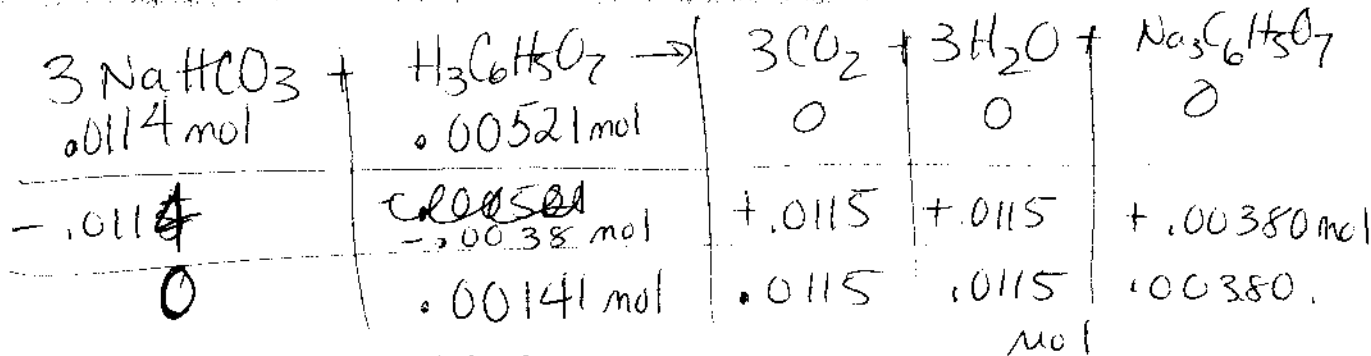 3 NaHCO3 + H3C6H5O7 → 3CO2 + 3H2O + Na3C6H5O7
.0114 mol .00521 mol 0 0 0
- .0114 -.0038 mol +.0115 +.0115 +.00380 mol
0 .00141 mol .0115 .0115 .00380.
mol